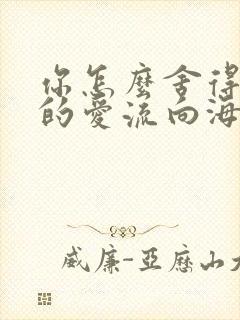 你怎麼舍得
的愛流向海
威廉-亞歷山大